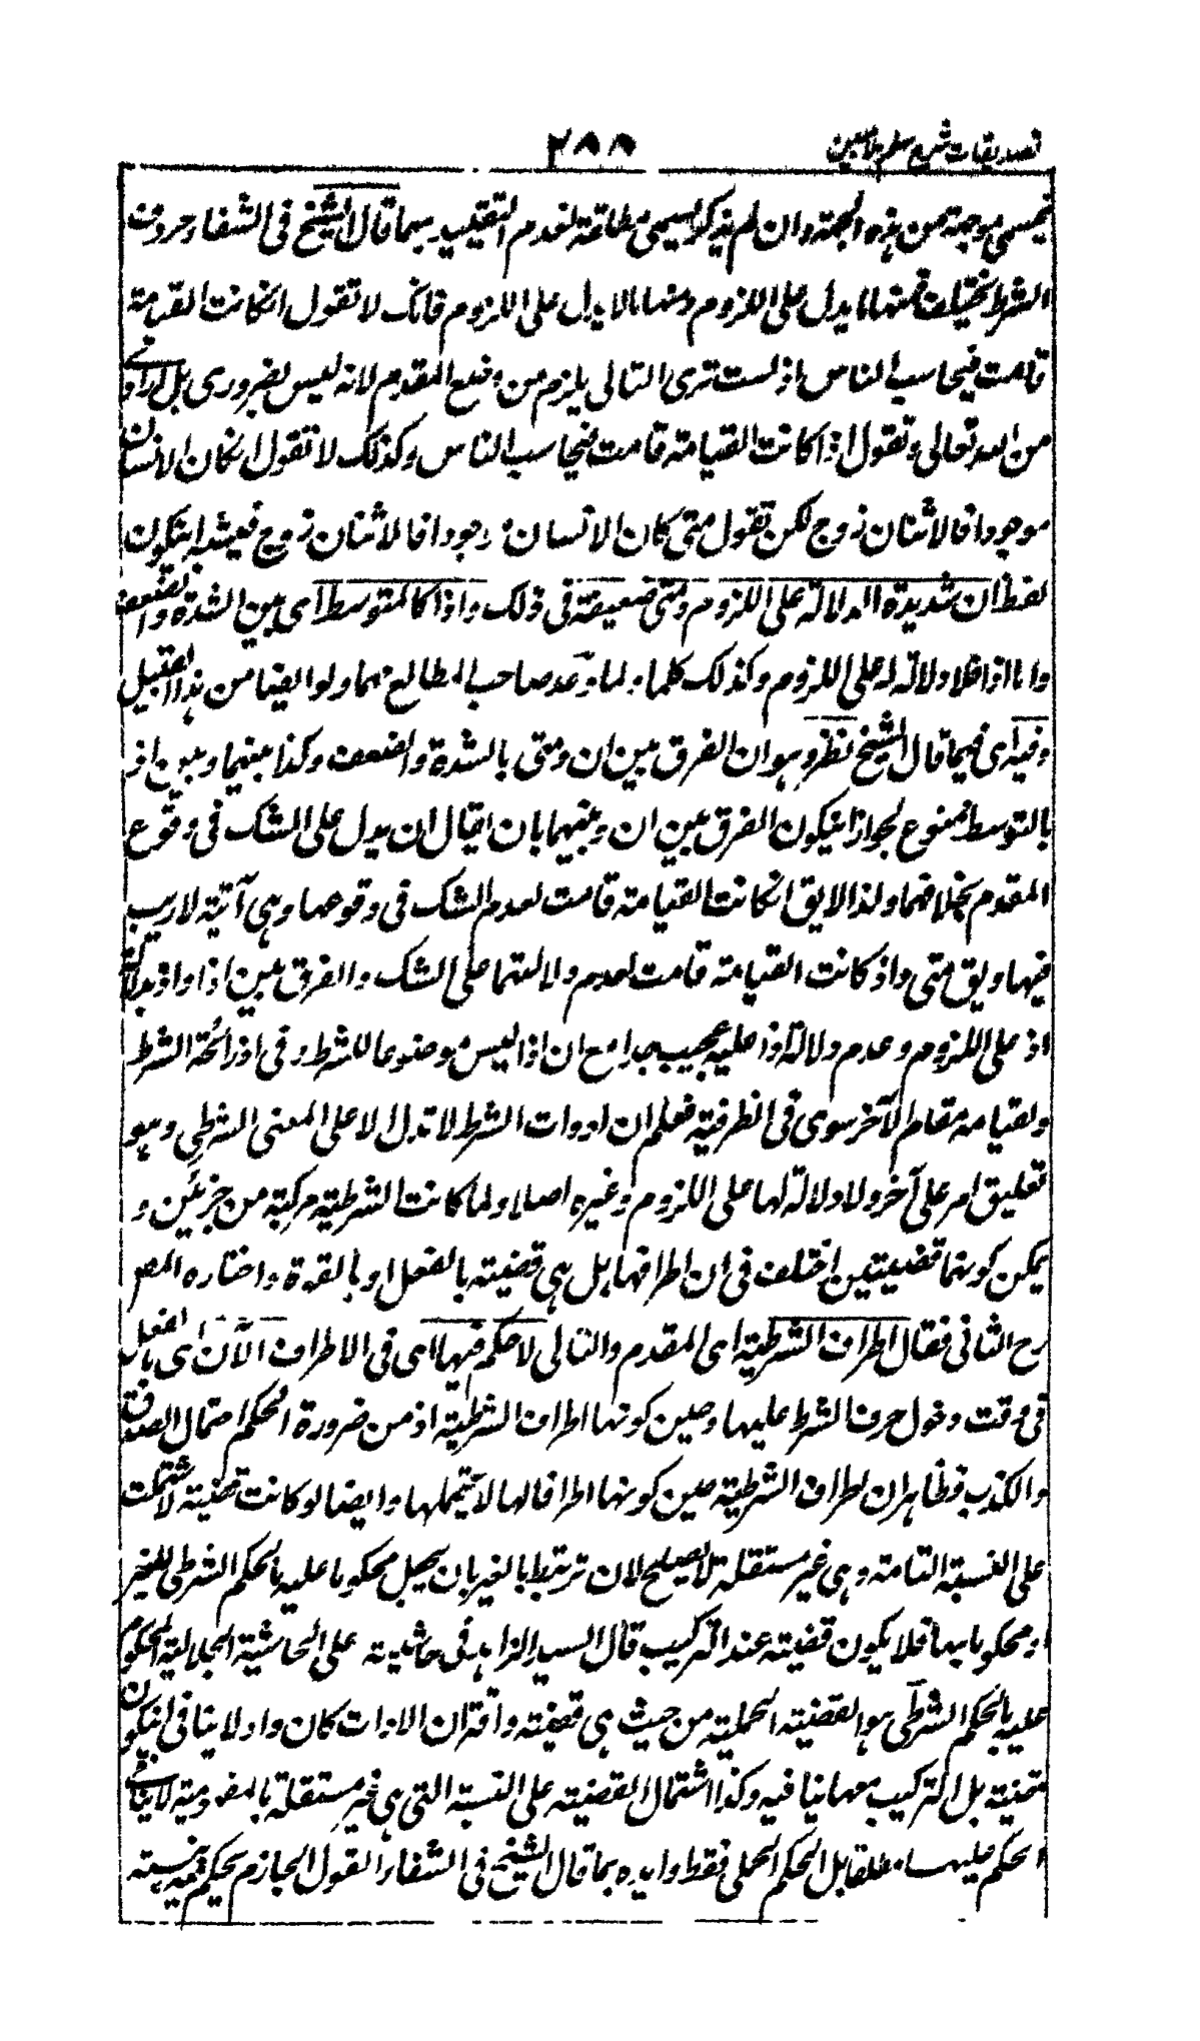 تصديقات شرح سلم ملا مبين
٢٨٨
فيسمى موجهة من هذه الجهة وان لم يذكر يسمى مطلقة لعدم التقييد بهما قال الشيخ فى الشفاء حروف
الشرط يختلف فمنها ما يدل على اللزوم ومنها ما لا يدل على اللزوم فانك لا تقول ان كانت القيامة
قامت فيحاسب الناس اذ لست ترى التالى يلزم من وضع المقدم لانه ليس بضرورى بل ارادى
من الله تعالى وتقول اذا كانت القيامة قامت فيحاسب الناس وكذلك لا تقول ان كان الانسان
موجودا فالاثنان زوج لكن تقول متى كان الانسان موجودا فالاثنان زوج فيشبه ان يكون
لفظ ان شديدة الدلالة على اللزوم ومتى ضعيفة فى ذلك واذا كالمتوسط اى بين الشدة والضعف
واما اذ فلا دلالة له على اللزوم وكذلك كلما ولما وعد صاحب المطالع مهما ولو ايضا من هذا القبيل
وفيه اى فيما قال الشيخ نظر وهو ان الفرق بين ان ومتى بالشدة والضعف وكذا بينهما وبين اذا
بالتوسط ممنوع لجواز ان يكون الفرق بين ان وبينهما بان يقال ان يدل على الشك فى وقوع
المقدم بخلافهما ولذا لا يق ان كانت القيامة قامت لعدم الشك فى وقوعها وهى آتية لا ريب
فيها ويق متى واذ كانت القيامة قامت لعدم دلالتهما على الشك والفرق بين اذا واذ بدلالة
اذ على اللزوم وعدم دلالة اذا عليه عجيب جدا مع ان اذا ليس موضوعا للشرط وفى اذ رائحة الشرط
ولقيامه مقام الآخر سوى فى الظرفية فعلم ان ادوات الشرط لا تدل الا على المعنى الشرطى وهو
تعليق امر على آخر ولا دلالة لها على اللزوم وغيره اصلا ولما كانت الشرطية مركبة من جزئين و
يمكن كونهما قضيتين اختلف فى ان اطرافها هل هى قضية بالفعل او بالقوة واختاره المص
رح الثانى فقال اطراف الشرطية اى المقدم والتالى لا حكم فيها اى فى الاطراف الآن اى بالفعل
فى وقت دخول حرف الشرط عليها وحين كونها اطراف الشرطية اذ من ضرورة الحكم احتمال الصدق
والكذب وظاهر ان اطراف الشرطية حين كونها اطرافا لها لا يحتملها وايضا لو كانت قضية لاشتملت
على النسبة التامة وهى غير مستقلة لا يصلح لان ترتبط بالغير بان يجعل محكوما عليه بالحكم الشرطى للغير
ومحكوما بها فلا يكون قضية عند التركيب قال السيد الزاهد فى حاشيته على الحاشية الجلالية المحكوم
عليه بالحكم الشرطى هو القضية الحملية من حيث هى قضية واقتران الادات كان واو لا ينافى ان يكون
قضية بل التركيب معها ينافيه وكذا اشتمال القضية على النسبة التى هى غير مستقلة بالمفهومية لا ينافى
الحكم عليها مطلقا بل الحكم الحملى فقط وايده بما قال الشيخ فى الشفاء القول الجازم يحكم فيه بنسبة